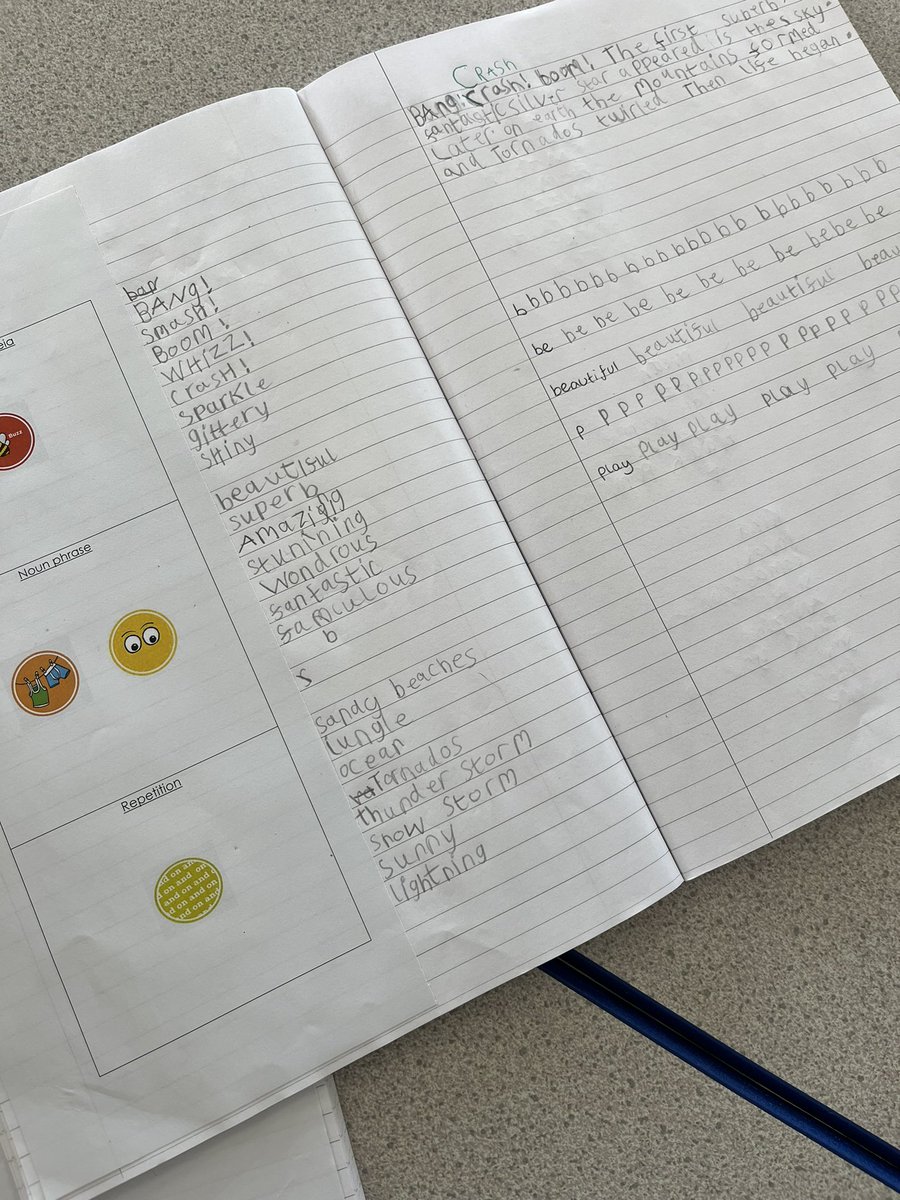 eia
Buzz
Noun phrase
Repetition
and on and on
bap
BAng!
smash!
BOOM!
WHIZZ!
crasH!
sparkle
gittery
shiny
beautiful
superb
Amazing
stunining
wondrous
fantastic
fabculous
b
s
sandy beaches
Jungle
ocean
Tornados
thunder storm
snow storm
sunny
lightning
CRASh
BAng! Crash! boom! The first superb,
fantastic silver star appeared is the sky.
Later on earth the mountains formed
and Tornados twirled Then life began.
b b b b b b b b b b b b b b b b b b b b b
be be be be be be be be be be be
beautiful beautiful beautiful beau
p p p p p p p p p p p p p p p p p p p p
play play play play play